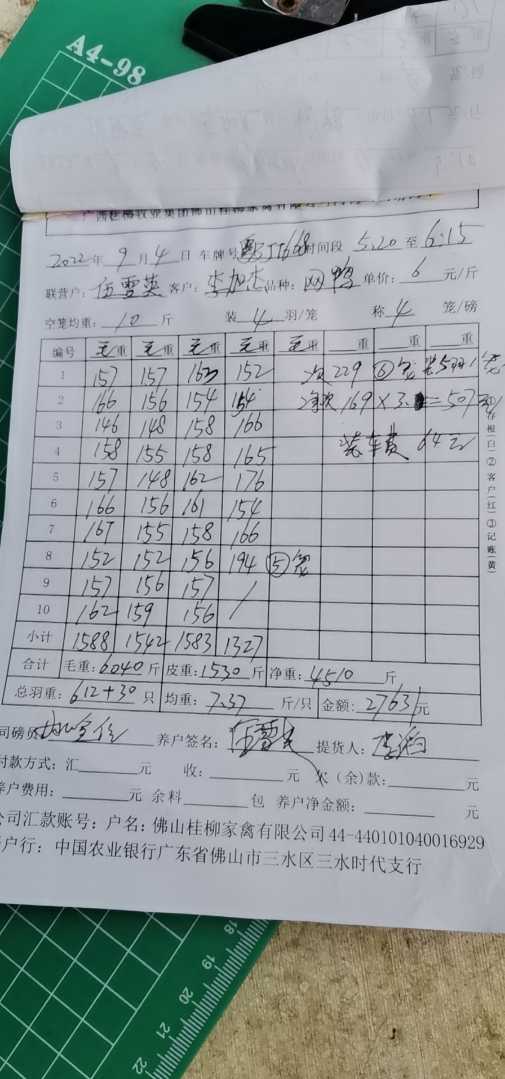 A4-98
2022年 9月 4日 车牌号 时间段 5.20 至 6:15
联营户: 伍雪英 客户: 李加杰 品种: 网鸭 单价: 6 元/斤
空笼均重: 10 斤 装 4 羽/笼 称 4 笼/磅
编号 毛重 毛重 毛重 毛重 毛重 重 重 重
1 157 157 162 152 次 229 ⑥笼
2 166 156 154 154 净次 169 × 3. = 507元
3 146 148 158 166
4 158 155 158 165 装车费 64元
5 157 148 162 176
6 166 156 161 154
7 167 155 158 166
8 152 152 156 194 ⑤笼
9 157 156 157 /
10 162 159 156 /
小计 1588 1542 1583 1327
合计 毛重: 6040 斤 皮重: 1530 斤 净重: 4510 斤
总羽重: 612+30 只 均重: 7.37 斤/只 金额: 27631元
根(白)②客户(红)③记账(黄)
司磅员 养户签名: 伍雪英 提货人:
付款方式: 汇 元 收: 元 欠(余)款: 元
养户费用: 元 余料 包 养户净金额: 元
公司汇款账号: 户名: 佛山桂柳家禽有限公司 44-440101040016929
户行: 中国农业银行广东省佛山市三水区三水时代支行
18
19
20
21
22